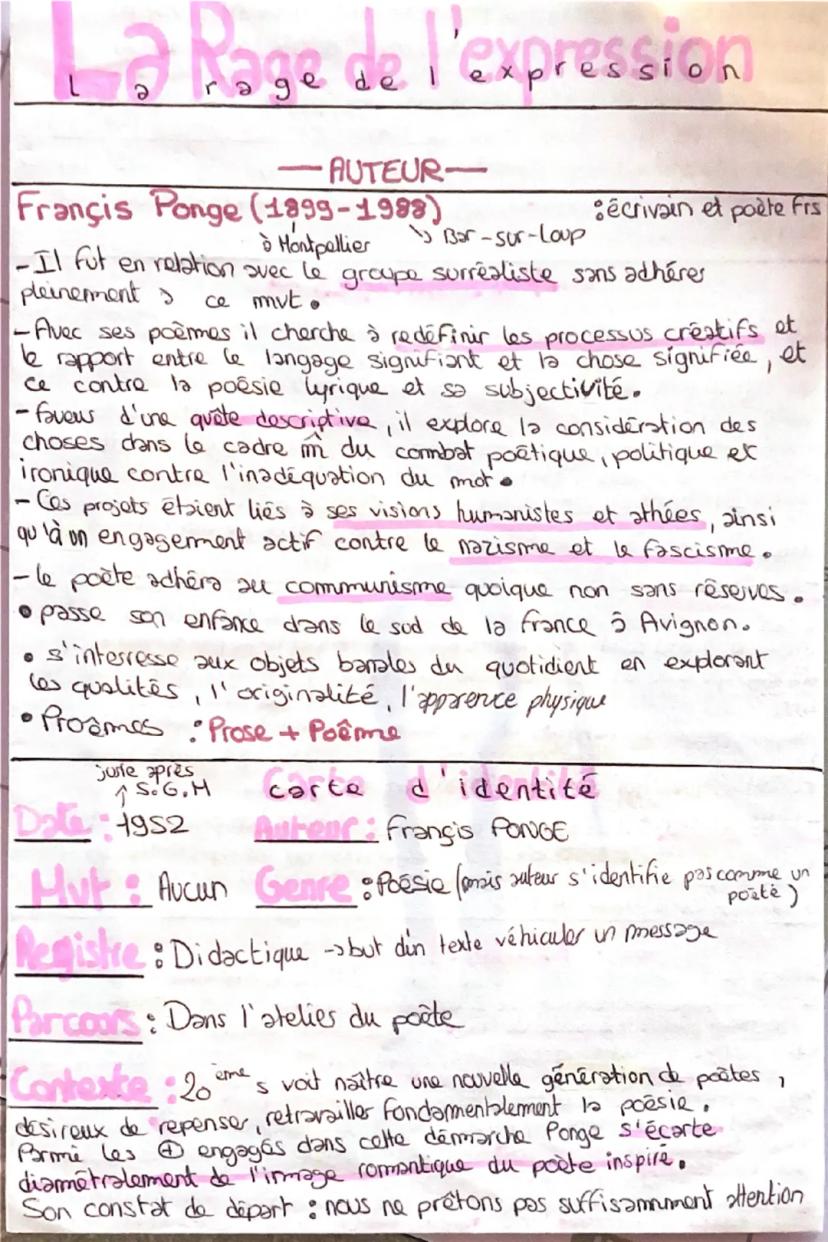 La Rage de l'expression
la rage de l'expression
— AUTEUR —
Françis Ponge (1899-1988) : écrivain et poète frs
à Montpellier ↘ Bar-sur-Loup
- Il fut en relation avec le groupe surréaliste sans adhérer
pleinement à ce mvt.
- Avec ses poèmes il cherche à redéfinir les processus créatifs et
le rapport entre le langage signifiant et la chose signifiée, et
ce contre la poésie lyrique et sa subjectivité.
- faveur d'une quête descriptive, il explore la considération des
choses dans le cadre m̂ du combat poétique, politique et
ironique contre l'inadéquation du mot.
- Ces projets étaient liés à ses visions humanistes et athées, ainsi
qu'à un engagement actif contre le nazisme et le fascisme.
- le poète adhéra au communisme quoique non sans réserves.
• passe son enfance dans le sud de la france à Avignon.
• s'interresse aux objets banales du quotidient en explorant
les qualités, l'originalité, l'apparence physique
• Proêmes : Prose + Poême
juste après
↑ S.G.M Carte d'identité
Date : 1952 Auteur : Françis PONGE
Mvt : Aucun Genre : Poésie (mais auteur s'identifie pas comme un
poète)
Registre : Didactique → but d'un texte véhiculer un message
Parcours : Dans l'atelier du poète
Contexte : 20ème s voit naître une nouvelle génération de poètes,
désireux de repenser, retravailler fondamentalement la poésie.
Parmi les ⊕ engagés dans cette démarche Ponge s'écarte
diamétralement de l'image romantique du poète inspiré.
Son constat de départ : nous ne prêtons pas suffisamment attention